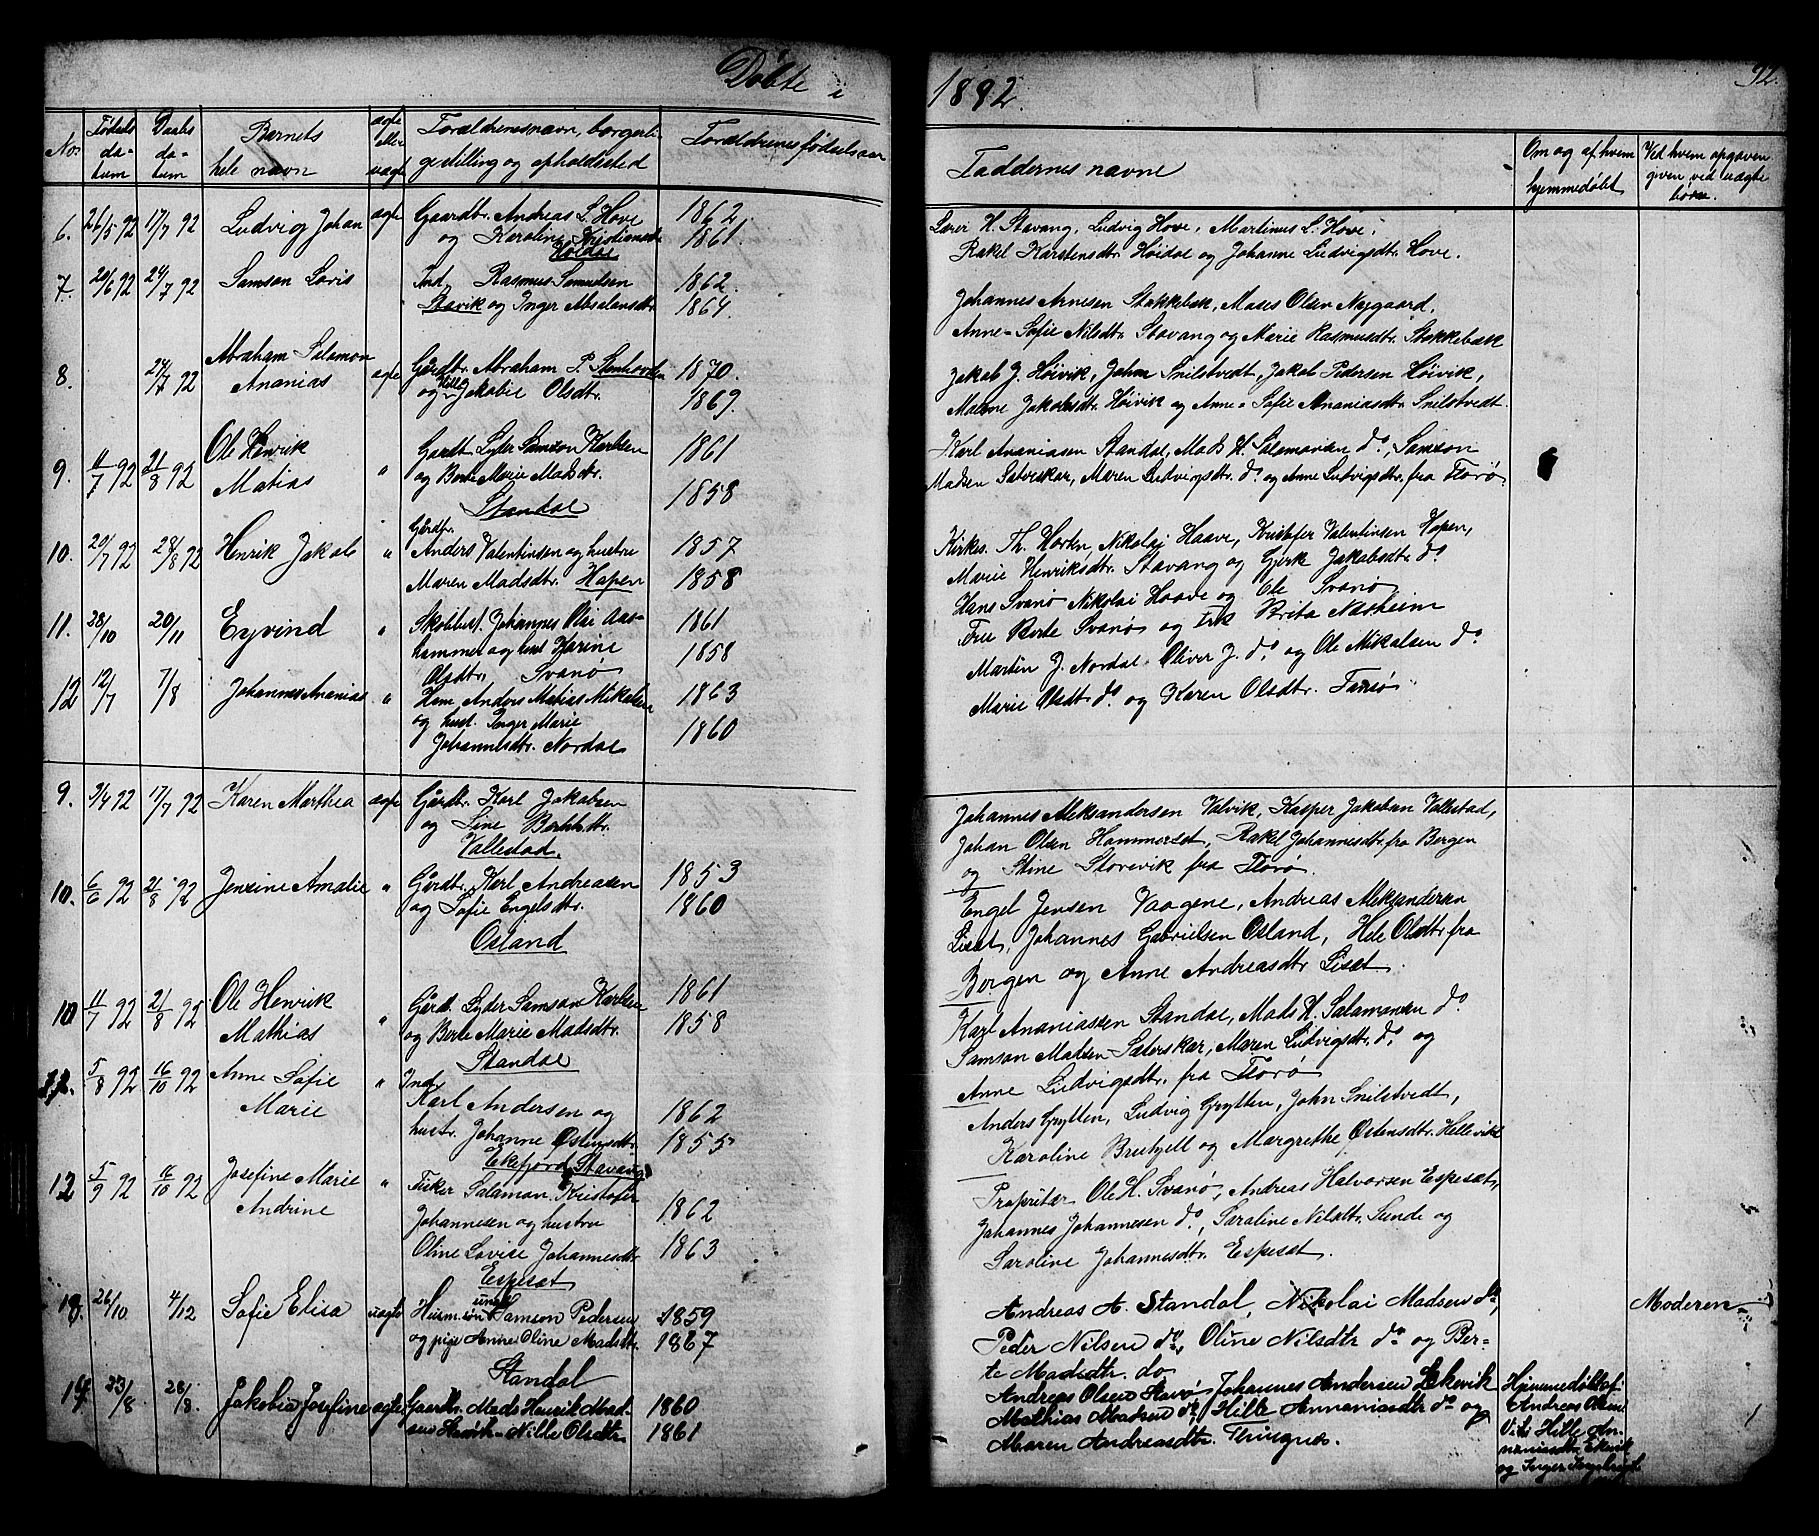 Døbte i
No.
Fødsels da- tum
Daabs da- tum
Barnets hele navn
ægte eller uægte
Forældrenes navn, borgerli-
ge stilling og opholdssted
Forældrenes fødselsaar
6. 26/5 92 17/7 92 Ludvig Johan ægte Gaardbr. Andreas L. Hove 1862.
og Karoline Kristiansdtr 1861.
7. 20/6 92 24/7 92 Samson Loris Ind. Rasmus Samuelsen 1862.
og Inger Absalonsdtr. 1864.
8. 24/7 92 Abraham Salamon ægte Gårdbr. Abraham P. Stenhovden 1870.
Ananias og Jakobie Olsdtr. 1869.
9. 11/7 92 21/8 92 Ole Henrik " Gardb. Lyder Samson Karlsen 1861
Matias og Berte Marie Madsdtr. 1858
Standal
10. 20/7 92 28/8 92 Henrik Jakob " Gårdbr.
Anders Valentinsen og hustru 1857
Maren Madsdtr. Hopen 1858
11. 28/10 20/11 Eyvind " Johannes Olai Aas- 1861
hammer og hust Karine 1858
Olsdtr. Svanø
12 12/7 7/8 Johannes Ananias " Anders Matias Mikalsen 1863
og hust. Inger Marie 1860
Johannesdtr. Nordal
9. 9/4 92 17/7 92 Karen Marthea ægte Gårdbr. Karl Jakobsen
og Sine
Vallestad.
10. 6/6 92 21/8 92 Jensine Amalie " Gårdbr. Karl Andreasen 1853
og Sofie Engelsdtr. 1860
Osland
10 11/7 92 21/8 92 Ole Henrik Gårdb. Lyder Samson Karlsen 1861
Mathias " og Berte Marie Madsdtr. 1858
Standal
5/8 92 16/10 92 Anne Sofie " Ind.
Marie Karl Andersen og 1862
hustr. Johanne Østensdtr. 1855
Ekefjord, Stavang
12 5/9 92 16/10 92 Josefine Marie " Fisker Salamon Kristofer
Andrine Johannesen og hustru 1862
Oline Lovise Johannesdtr 1863
Espeset
13. 26/10 4/12 Sofie Elisa uægte Husm.søn ungk. Samson Pedersen 1859
og pige Anne Oline Madsdtr. 1867
Standal
14 23/8 28/8. Jakobia Josefine ægte Gaardbr. Mads Henrik Mad- 1860
sen Nille Olsdtr. 1861
1892.
92.
Faddernes navne
Om og af hvem
hjemmedøbt
Ved hvem opgaven
given ved uægte
børn.
Lærer H. Stavang, Ludvig Hove, Martinus L. Hove,
Rakel Karstensdtr. Høidal og Johanne Ludvigsdtr. Hove.
Johannes Arnesen Stokkebæk, Moses Olsen Nygaard,
Anne-Sofie Nilsdtr. Stavang og Marie Rasmusdtr. Stokkebæk
Jakob J. Høivik, John Snilstvedt, Jakob Pedersen Høivik,
Malene Jakobsdtr. Høivik og Anne-Sofie Ananiasdtr. Snilstvedt.
Karl Ananiasen Standal, Mads H. Salamonsen do, Samson
Madsen Sæterskar, Maren Ludvigsdtr. do og Anne Ludvigsdtr. fra Florø
Kirkes. Th. Horten, Nikolaj Haave, Kristofer Valentinsen Hopen,
Marie Henriksdtr. Stavang og Gjerk Jakobsdtr. do
Hans Svanø Nikolai Haave og Ole Svanø
Fru Berte Svanø og Frk Brita Næsheim
Martin J. Nordal Oliver J. do og Ole Mikalsen do
Marie Olsdtr do og Karen Olsdtr.
Johannes Aleksandersen Valvik, Kasper Jakobsen Vallestad,
Johan Olsen Hammerset, Rakel Johannesdtr. fra Bergen
og Stine Storevik fra Florø.
Engel Jensen Vaagene, Andreas Aleksandersen
Liset, Johannes Gabrielsen Osland, Hele Olsdtr. fra
Bergen og Anne Andreasdtr Liset
Karl Ananiassen Standal, Mads H. Salamonsen do
Samson Madsen Sæterskar, Maren Ludvigsdtr. do og
Anne Ludvigsdtr. fra Florø
Anders Grytten, Ludvig Grytten, John Snilstvedt,
Karoline og Margrethe Østensdtr. Hellevik
Proprietær Ole H. Svanø, Andreas Halvorsen Espeset,
Johannes Johannesen do, Saraline Nilsdtr. Sunde og
Saraline Johannesdtr. Espeset.
Andreas A. Standal, Nikolai Madsen do, Moderen
Peder Nilsen do, Oline Nilsdtr do og Ber-
te Madsdtr. do
Andreas Olsen Johannes Andersen Hjemmedøbt af
Mathias Madsen do, Hille Annaniasdtr do og Andreas Olsen
Maren Andreasdtr. Hille An-
naniasdtr.
og Inger